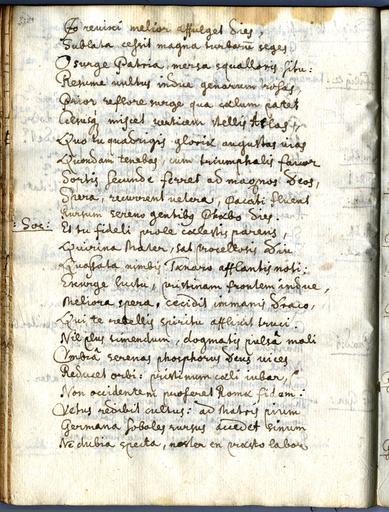 revixi melior affulget dies,
Sublata cessit magna turbarū seges
O surge Patria, mersa squalloris situ:
Resume vultus indue genarum rosas,
Prior reflore surge qua cœlum patet
Celsusq miscet verticem stellis Atlas,
Quo tu quadrigis gloriæ augustas vias
Quondam tenebas, cum triumphalis favor
Sortis secundæ ferret ad magnos Deos,
Spera, recurrent vetera, pacati fluent
Rursum sereno gentibus Phœbo dies.
: Soc: Et tu fideli prole cœlestis parens,
Quirina Mater, sat procellosis diu
Quassata nimbis Tænaro afflantis noti:
Exurge luctu, pristinam frontem indue,
Meliora spera, cecidit immanis Draco,
Qui te rebellis spiritu afflixit truci.
Nil plus timendum, dogmatis pulsâ mali
Umbrâ serenas phosphorus Deus vices
Reducet orbi: pristinum cœli iubar,
Non occidentem proferet Romæ fidem:
Vetus redibit cultus: ad Matris pium
Germana soboles rursus accedet sinum
Ne dubia specta, noster en præsto labor